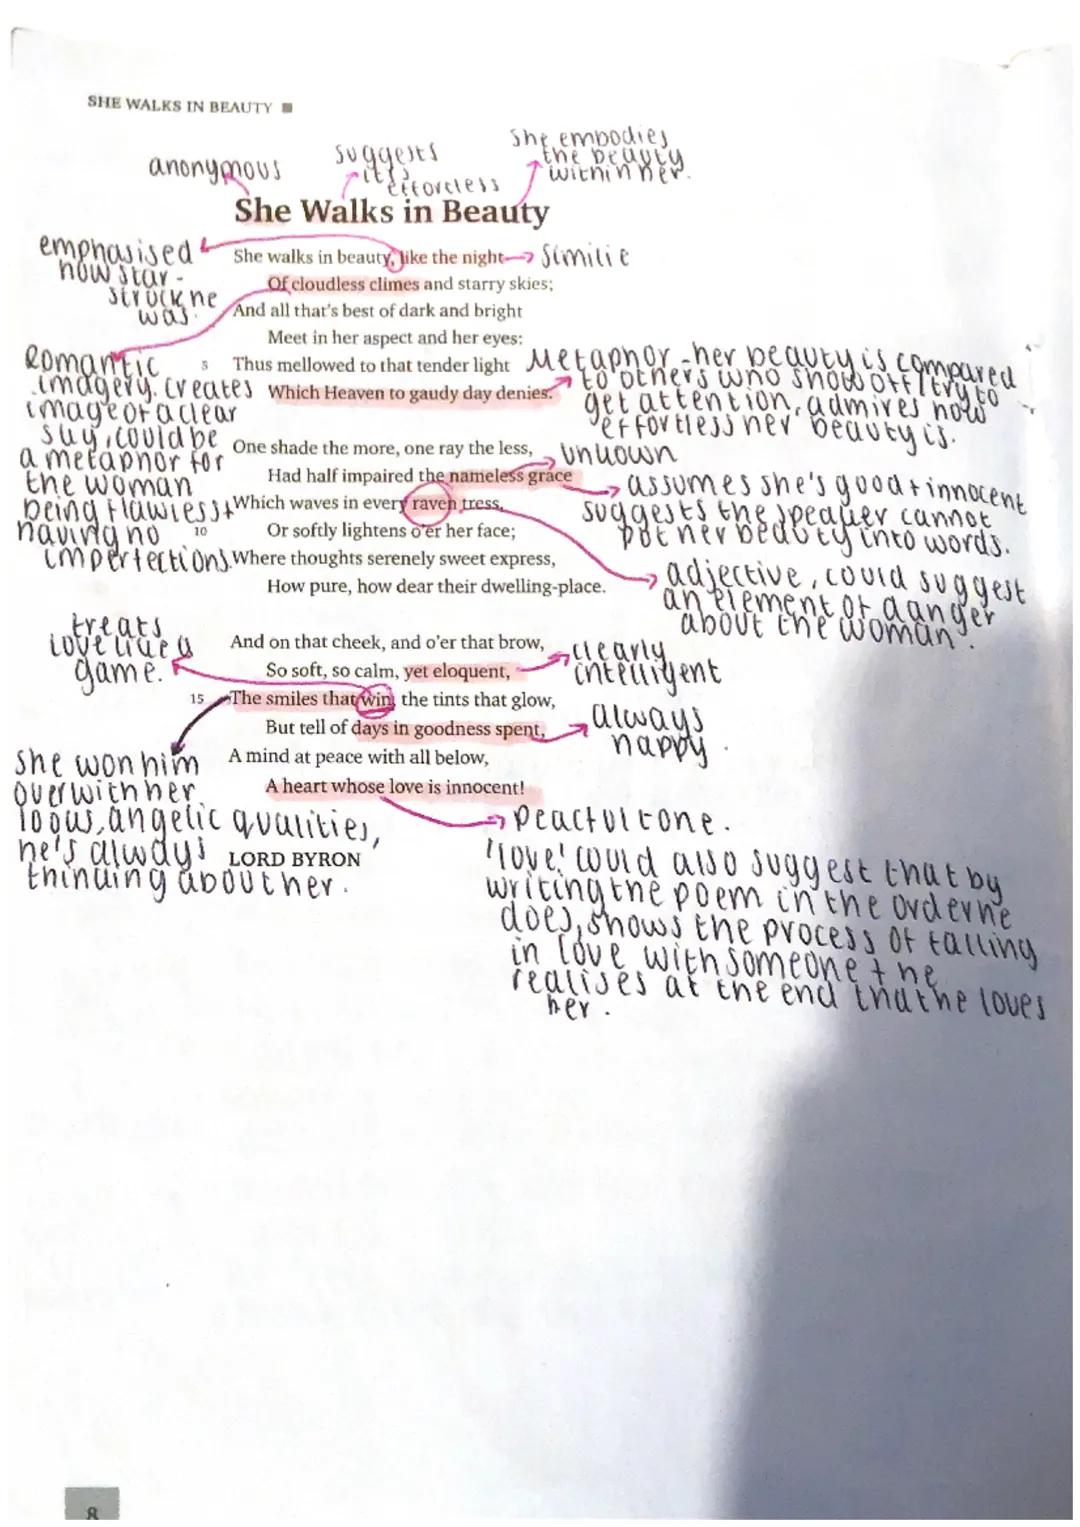 SHE WALKS IN BEAUTY
anonymous
suggests
it's
effortless
She embodies
the beauty
within her.
She Walks in Beauty
emphasised
how star-
struck he
was.
She walks in beauty, like the night
Similie
Of cloudless climes and starry skies;
And all that's best of dark and bright
Meet in her aspect and her eyes:
5 Thus mellowed to that tender light
Which Heaven to gaudy day denies.
Romantic
imagery. Creates
image of a clear
sky, could be
a metaphor for
the woman
being flawless +
having no
imperfections.
Metaphor - her beauty is compared
to others who show off/try to
get attention, admires how
effortless her beauty is.
One shade the more, one ray the less,
Had half impaired the nameless grace
Which waves in every raven tress,
10 Or softly lightens o'er her face;
Where thoughts serenely sweet express,
How pure, how dear their dwelling-place.
Unkown
assumes she's good + innocent
suggests the speaker cannot
put her beauty into words.
adjective, could suggest
an element of danger
about the woman.
treats
love like a
game.
And on that cheek, and o'er that brow,
So soft, so calm, yet eloquent,
15 The smiles that win, the tints that glow,
But tell of days in goodness spent,
A mind at peace with all below,
A heart whose love is innocent!
clearly
intelligent
always
happy.
she won him
over with her
looks, angelic qualities,
he's always
thinking about her.
LORD BYRON
Peacful tone.
'love!' could also suggest that by
writing the poem in the order he
does, shows the process of falling
in love with someone + he
realises at the end that he loves
her.
8